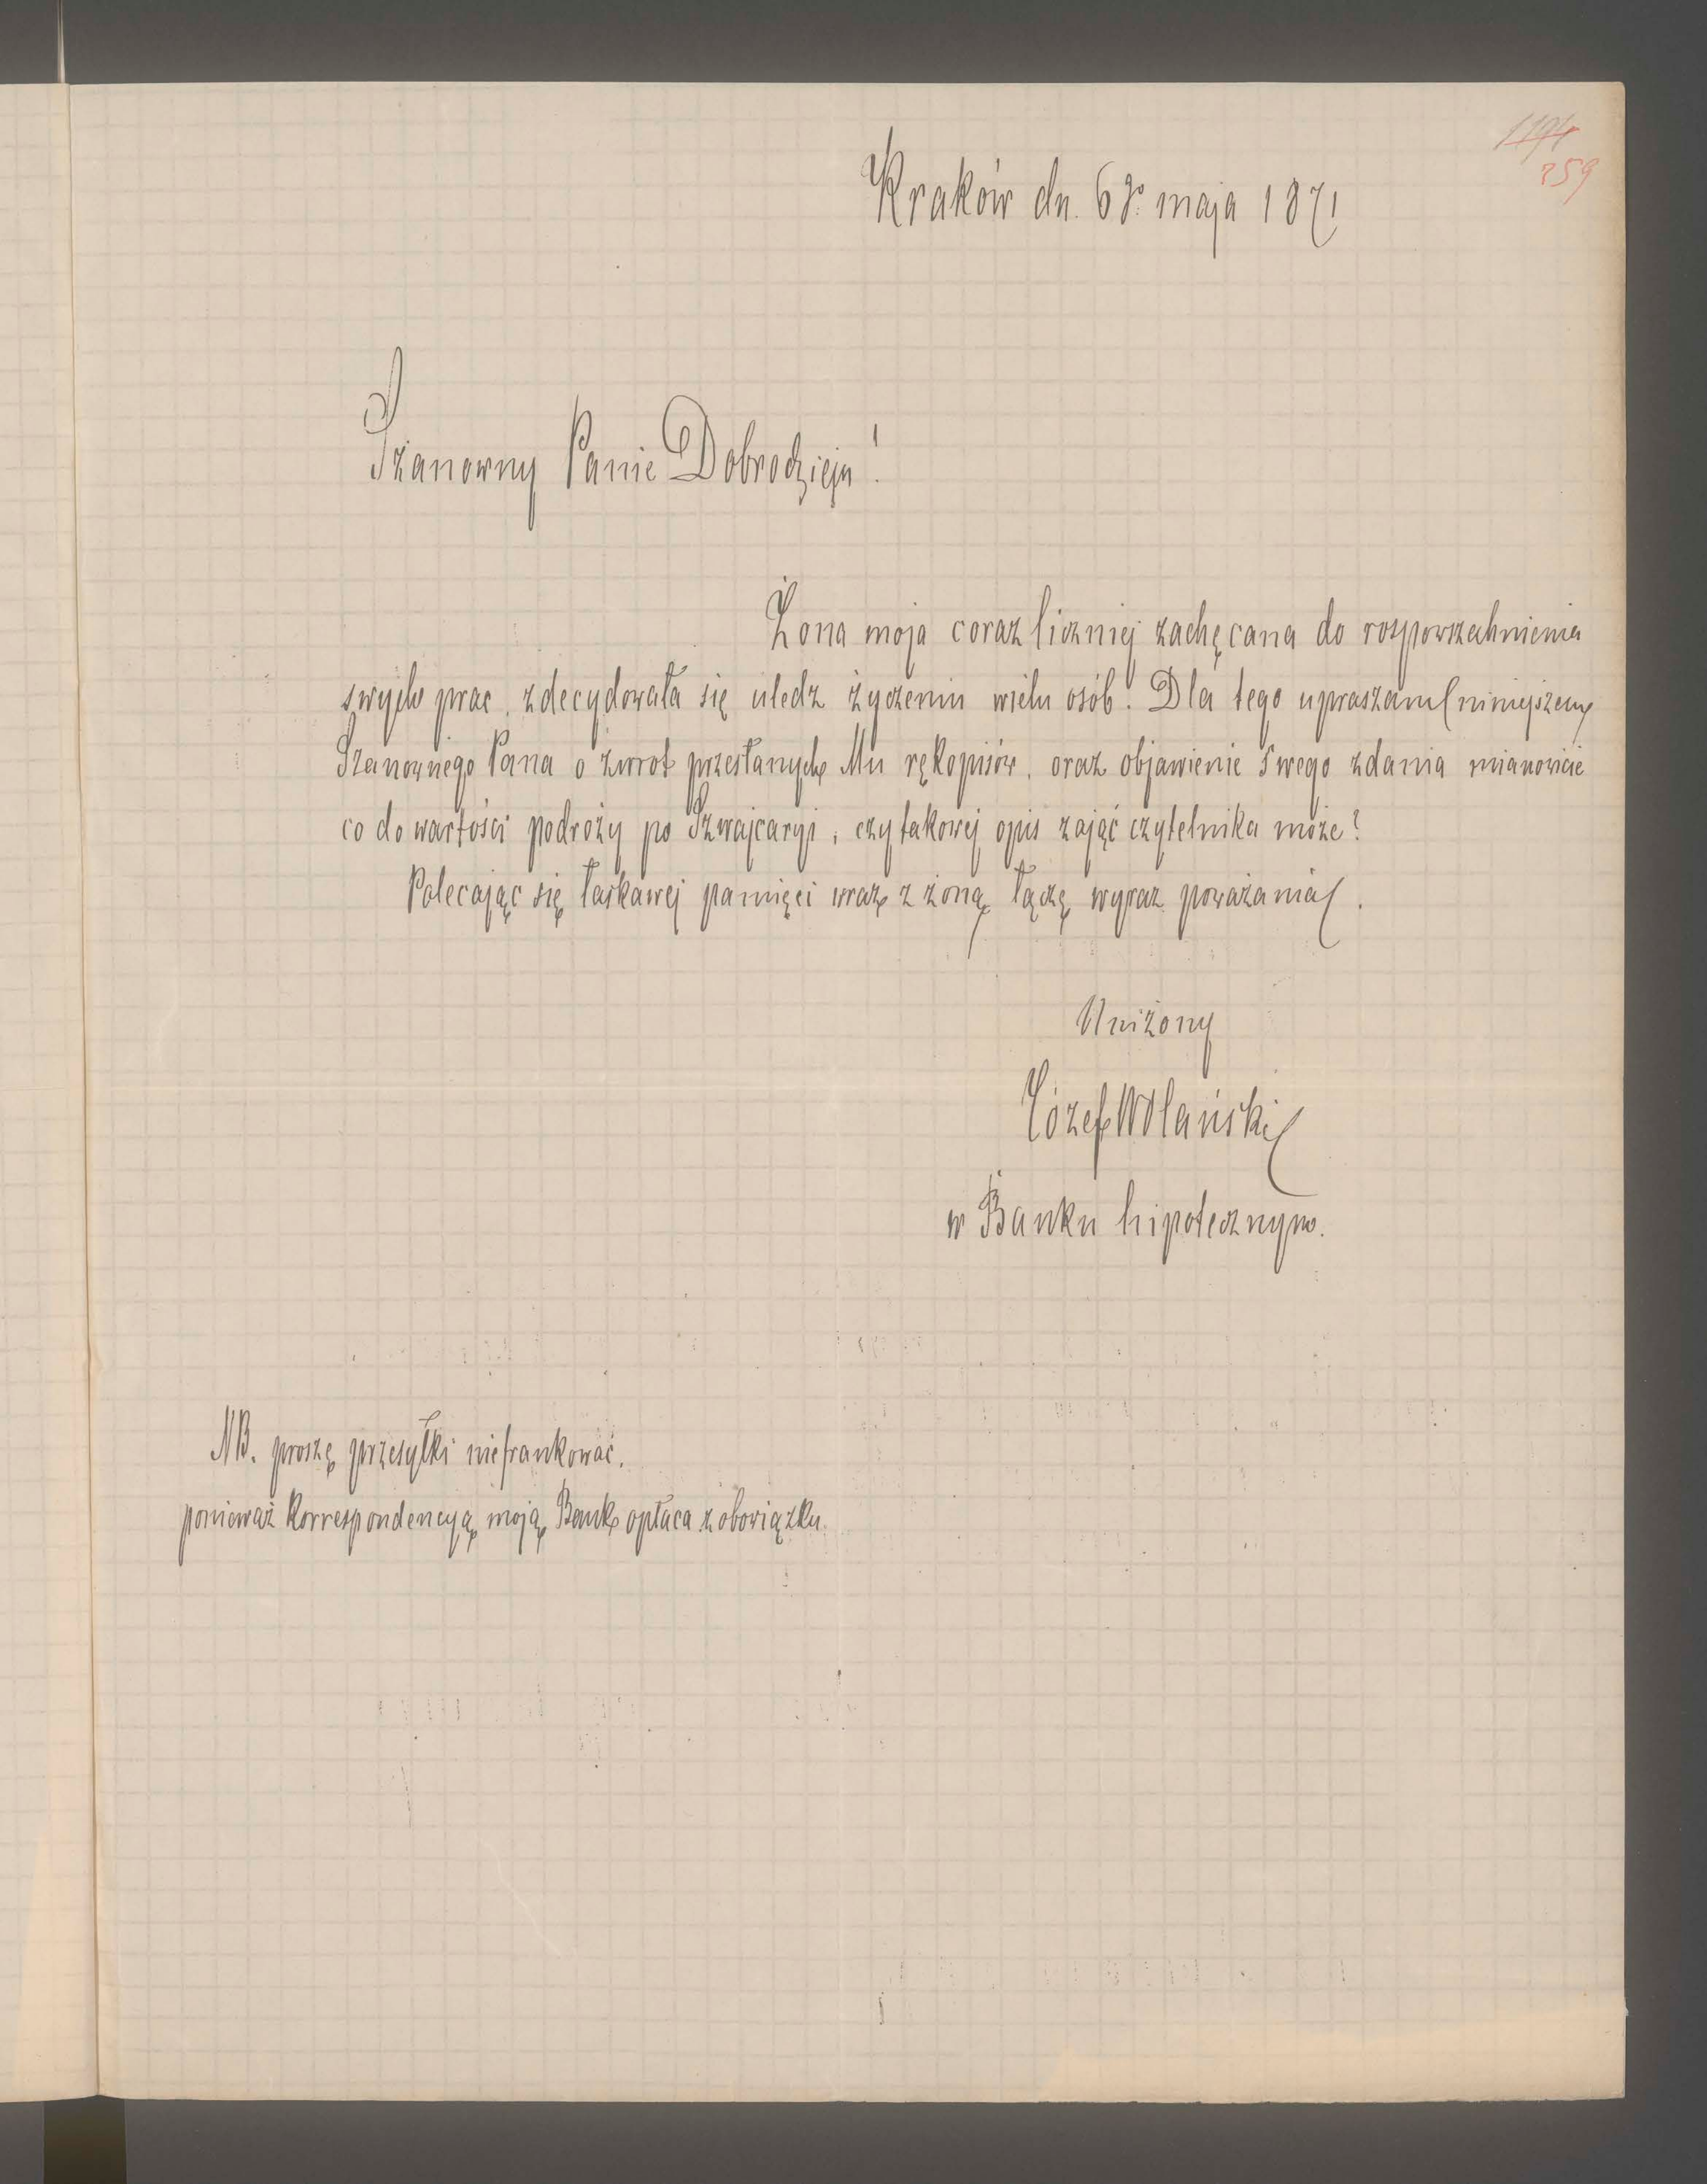 1194
259
Kraków dn. 6go maja 1871
Szanowny Panie Dobrodzieju!
Żona moja coraz liczniej zachęcana do rozpowszechnienia
swych prac, zdecydowała się uledz życzeniu wielu osób. Dla tego upraszam niniejszem
Szanownego Pana o zwrot przesłanych Mu rękopisów, oraz objawienie swego zdania mianowicie
co do wartości podróży po Szwajcaryi, czy takowej opis zająć czytelnika może?
Polecając się łaskawej pamięci wraz z żoną łączę wyraz poważania.
Uniżony
Józef Wolański
w Banku hipotecznym.
NB. proszę przesyłki niefrankować,
ponieważ korrespondencyą moją Bank opłaca z obowiązku.